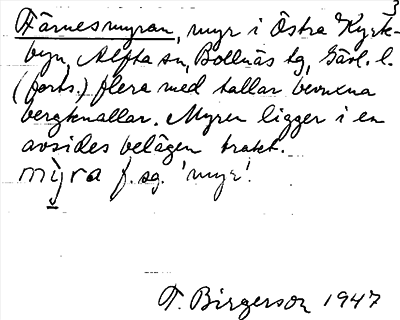 3
Färnesmyran, myr i Östra Kyrk-
byn, Alfta sn, Bollnäs tg, Gävl. l.
(forts.) flera med tallar bevuxna
bergknallar. Myren ligger i en
avsides belägen trakt.
mỳra f. sg. 'myr'.
T. Birgerson 1947